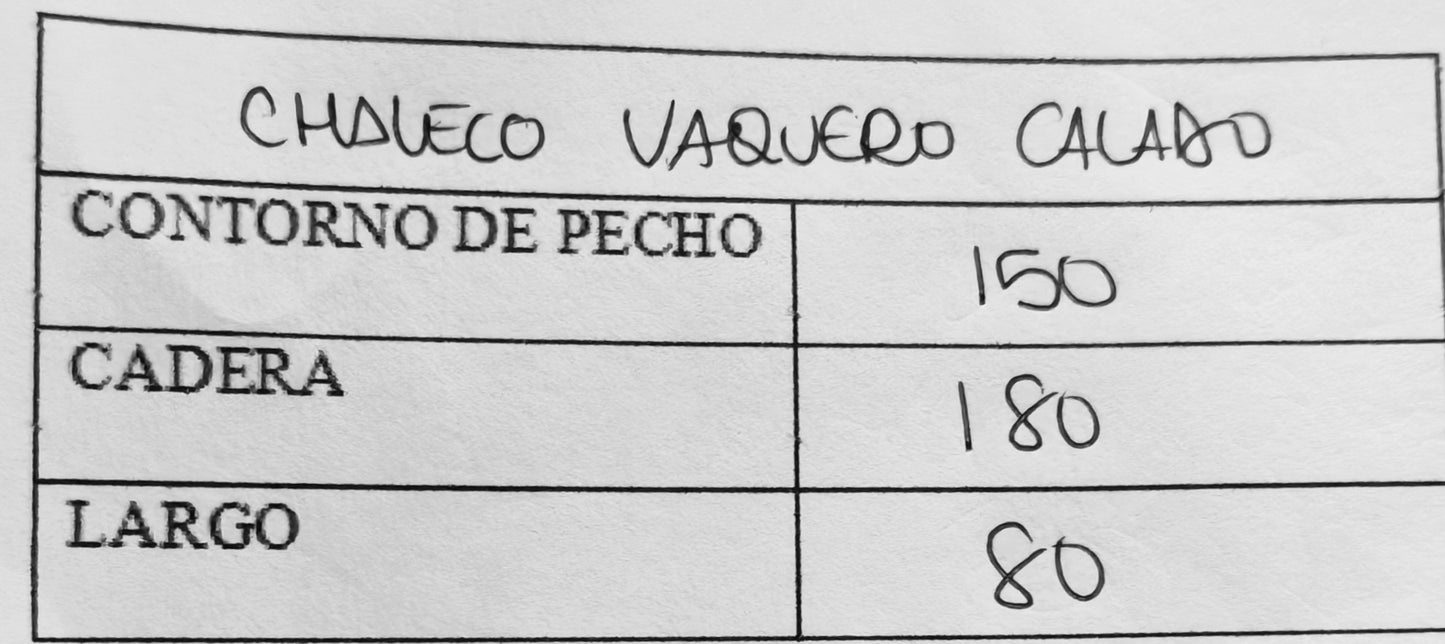 CHALECO VAQUERO CALADO
CONTORNO DE PECHO 150
CADERA 180
LARGO 80